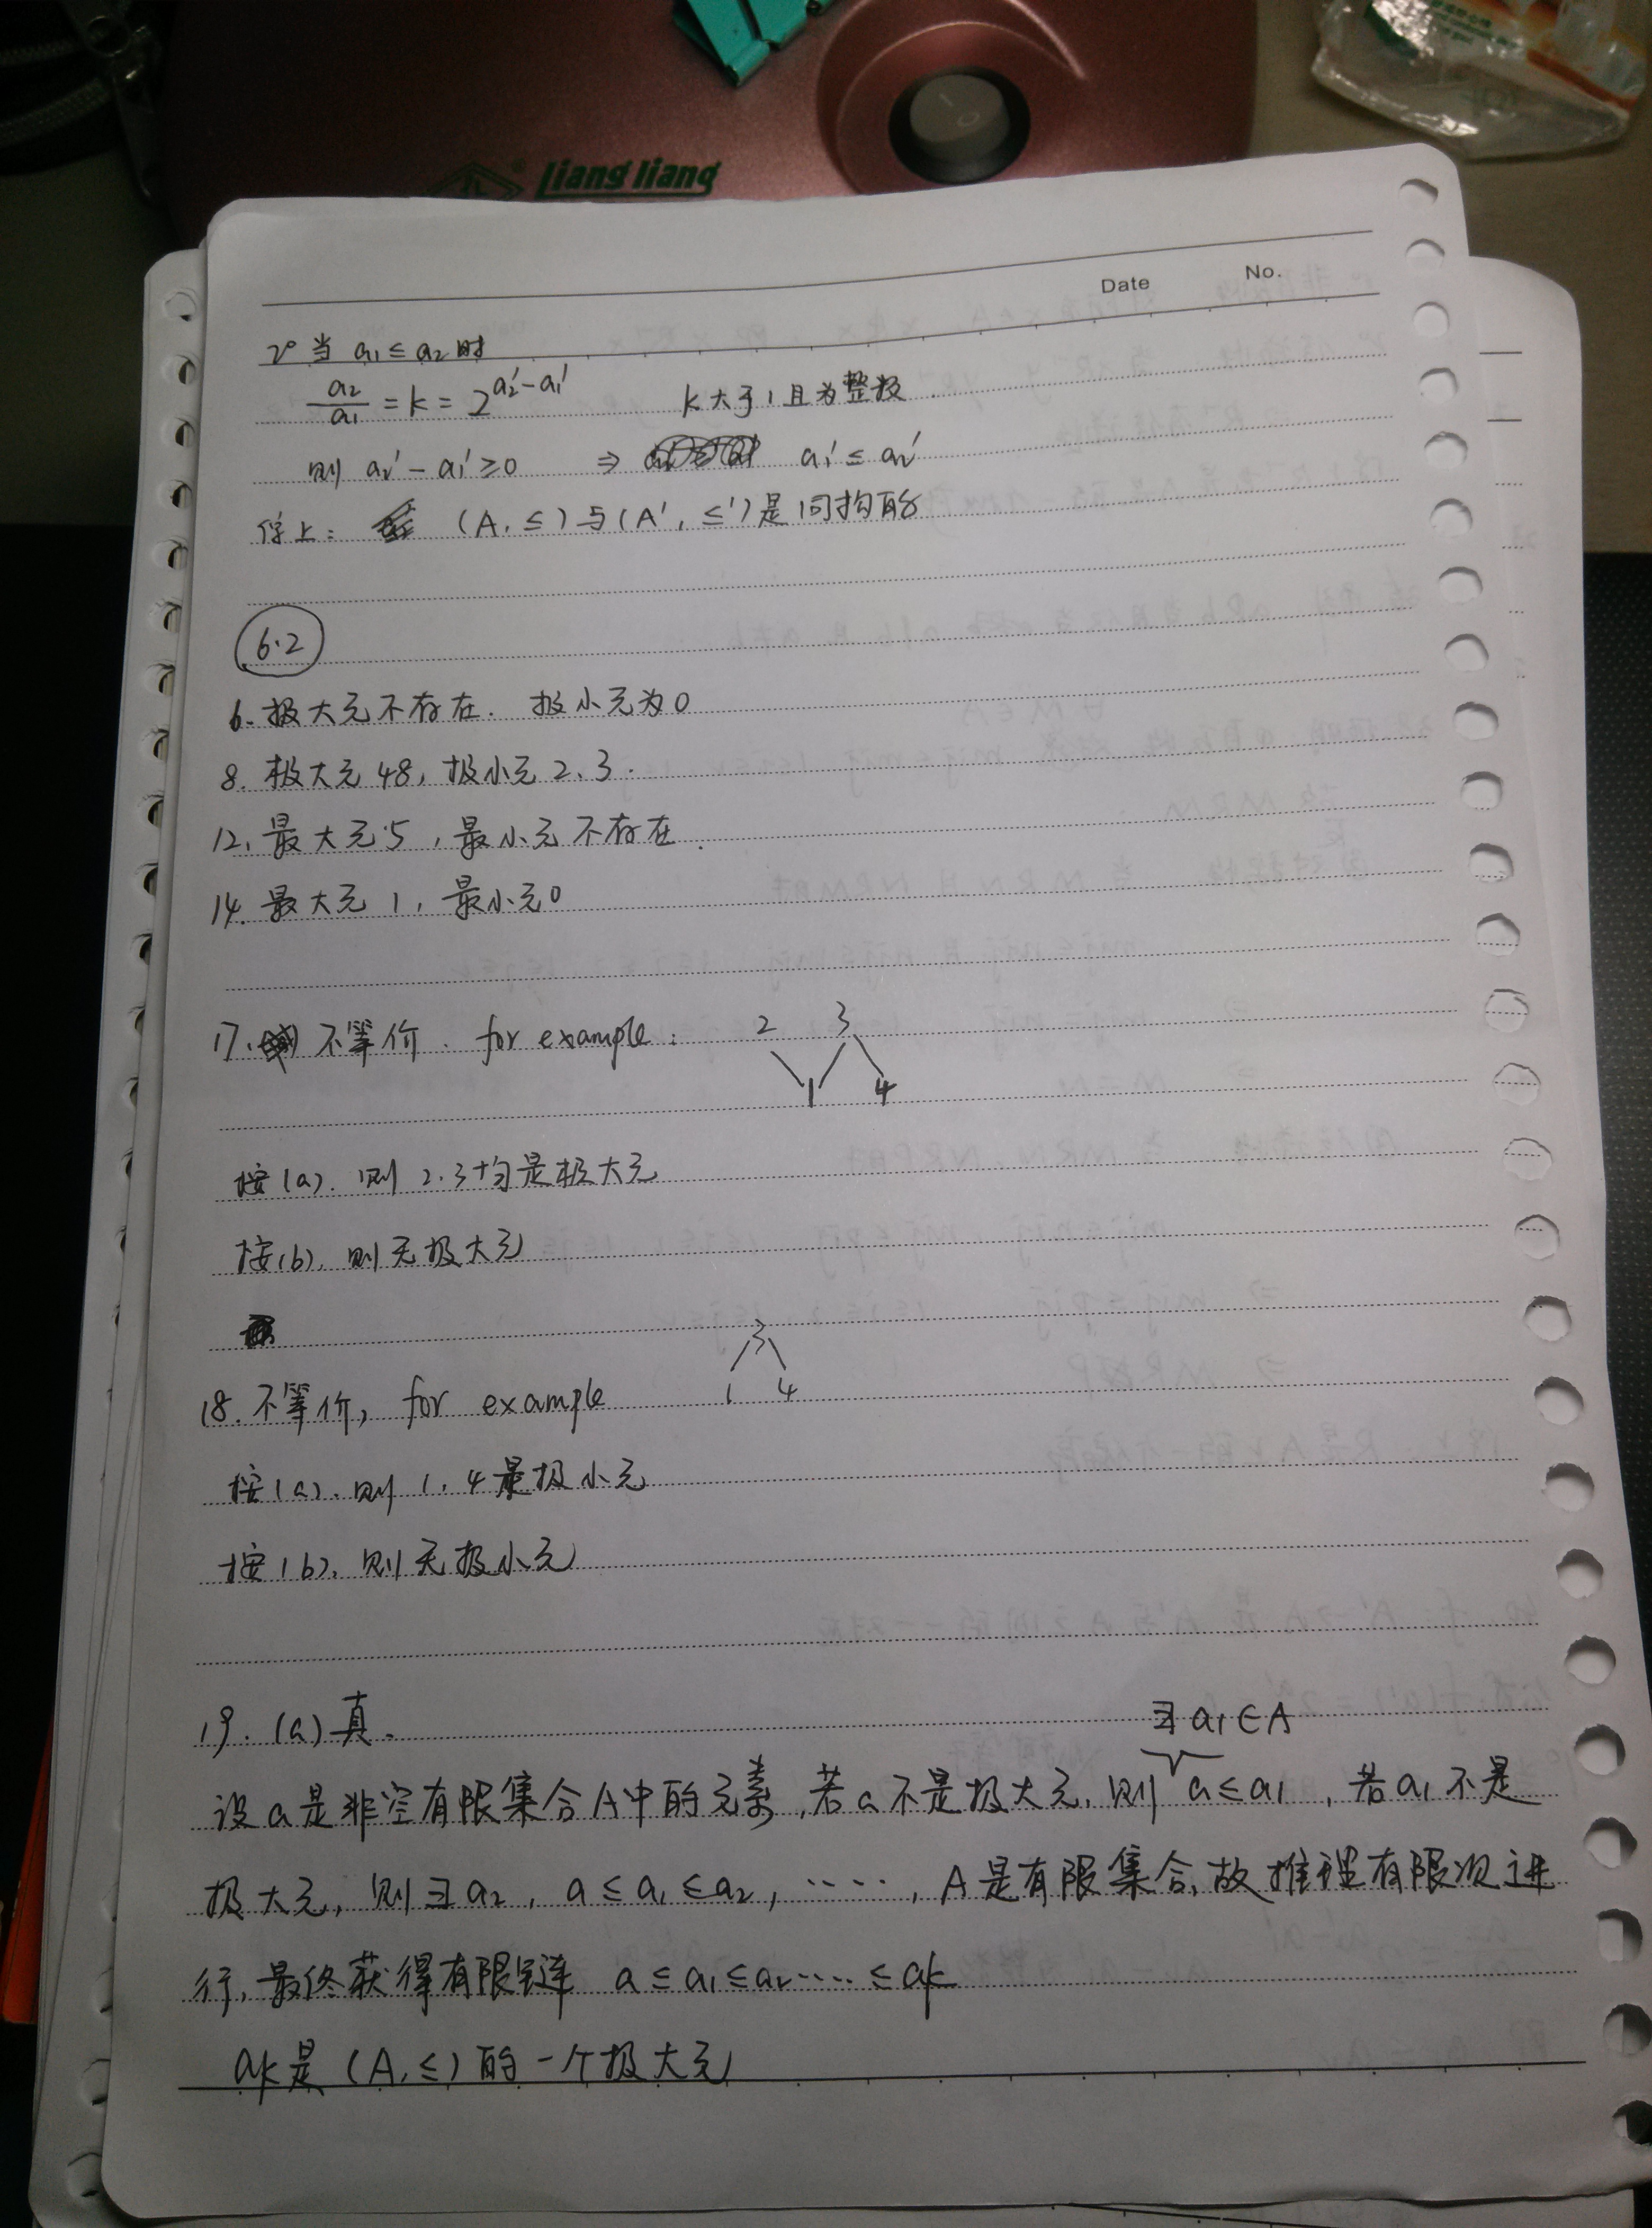 liang liang
Date No.
2° 当 a₁ ≤ a₂ 时
a₂/a₁ = k = 2^(a₂′-a₁′) k大于1且为整数.
则 a₂′ - a₁′ ≥ 0 ⇒ a₁′ ≤ a₂′
综上: (A, ≤) 与 (A′, ≤′) 是同构的
6.2
6. 极大元不存在. 极小元为0
8. 极大元48, 极小元2、3.
12. 最大元5, 最小元不存在.
14. 最大元1, 最小元0
17. 不等价. for example:
2 3
1 4
按(a). 则2.3均是极大元
按(b). 则无极大元
3
1 4
18. 不等价, for example
按(a). 则1. 4是极小元
按(b). 则无极小元
19. (a) 真.
∃ a₁∈A
设a是非空有限集合A中的元素, 若a不是极大元, 则 a≤a₁, 若a₁不是
极大元, 则∃a₂, a≤a₁≤a₂, ……, A是有限集合, 故推理有限次进
行, 最终获得有限链 a≤a₁≤a₂……≤ak
ak是(A, ≤)的一个极大元